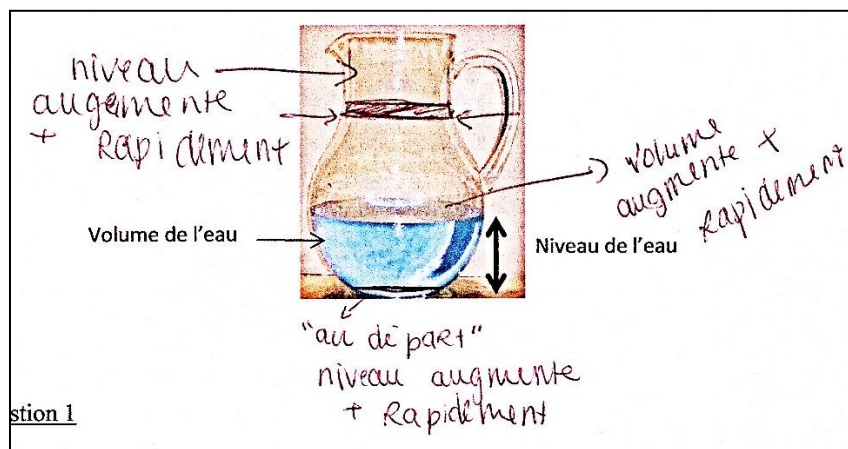 niveau
augemente
+ Rapidement
Volume
augmente +
Rapidement
Volume de l'eau
Niveau de l'eau
"au départ"
niveau augmente
+ Rapidement
stion 1